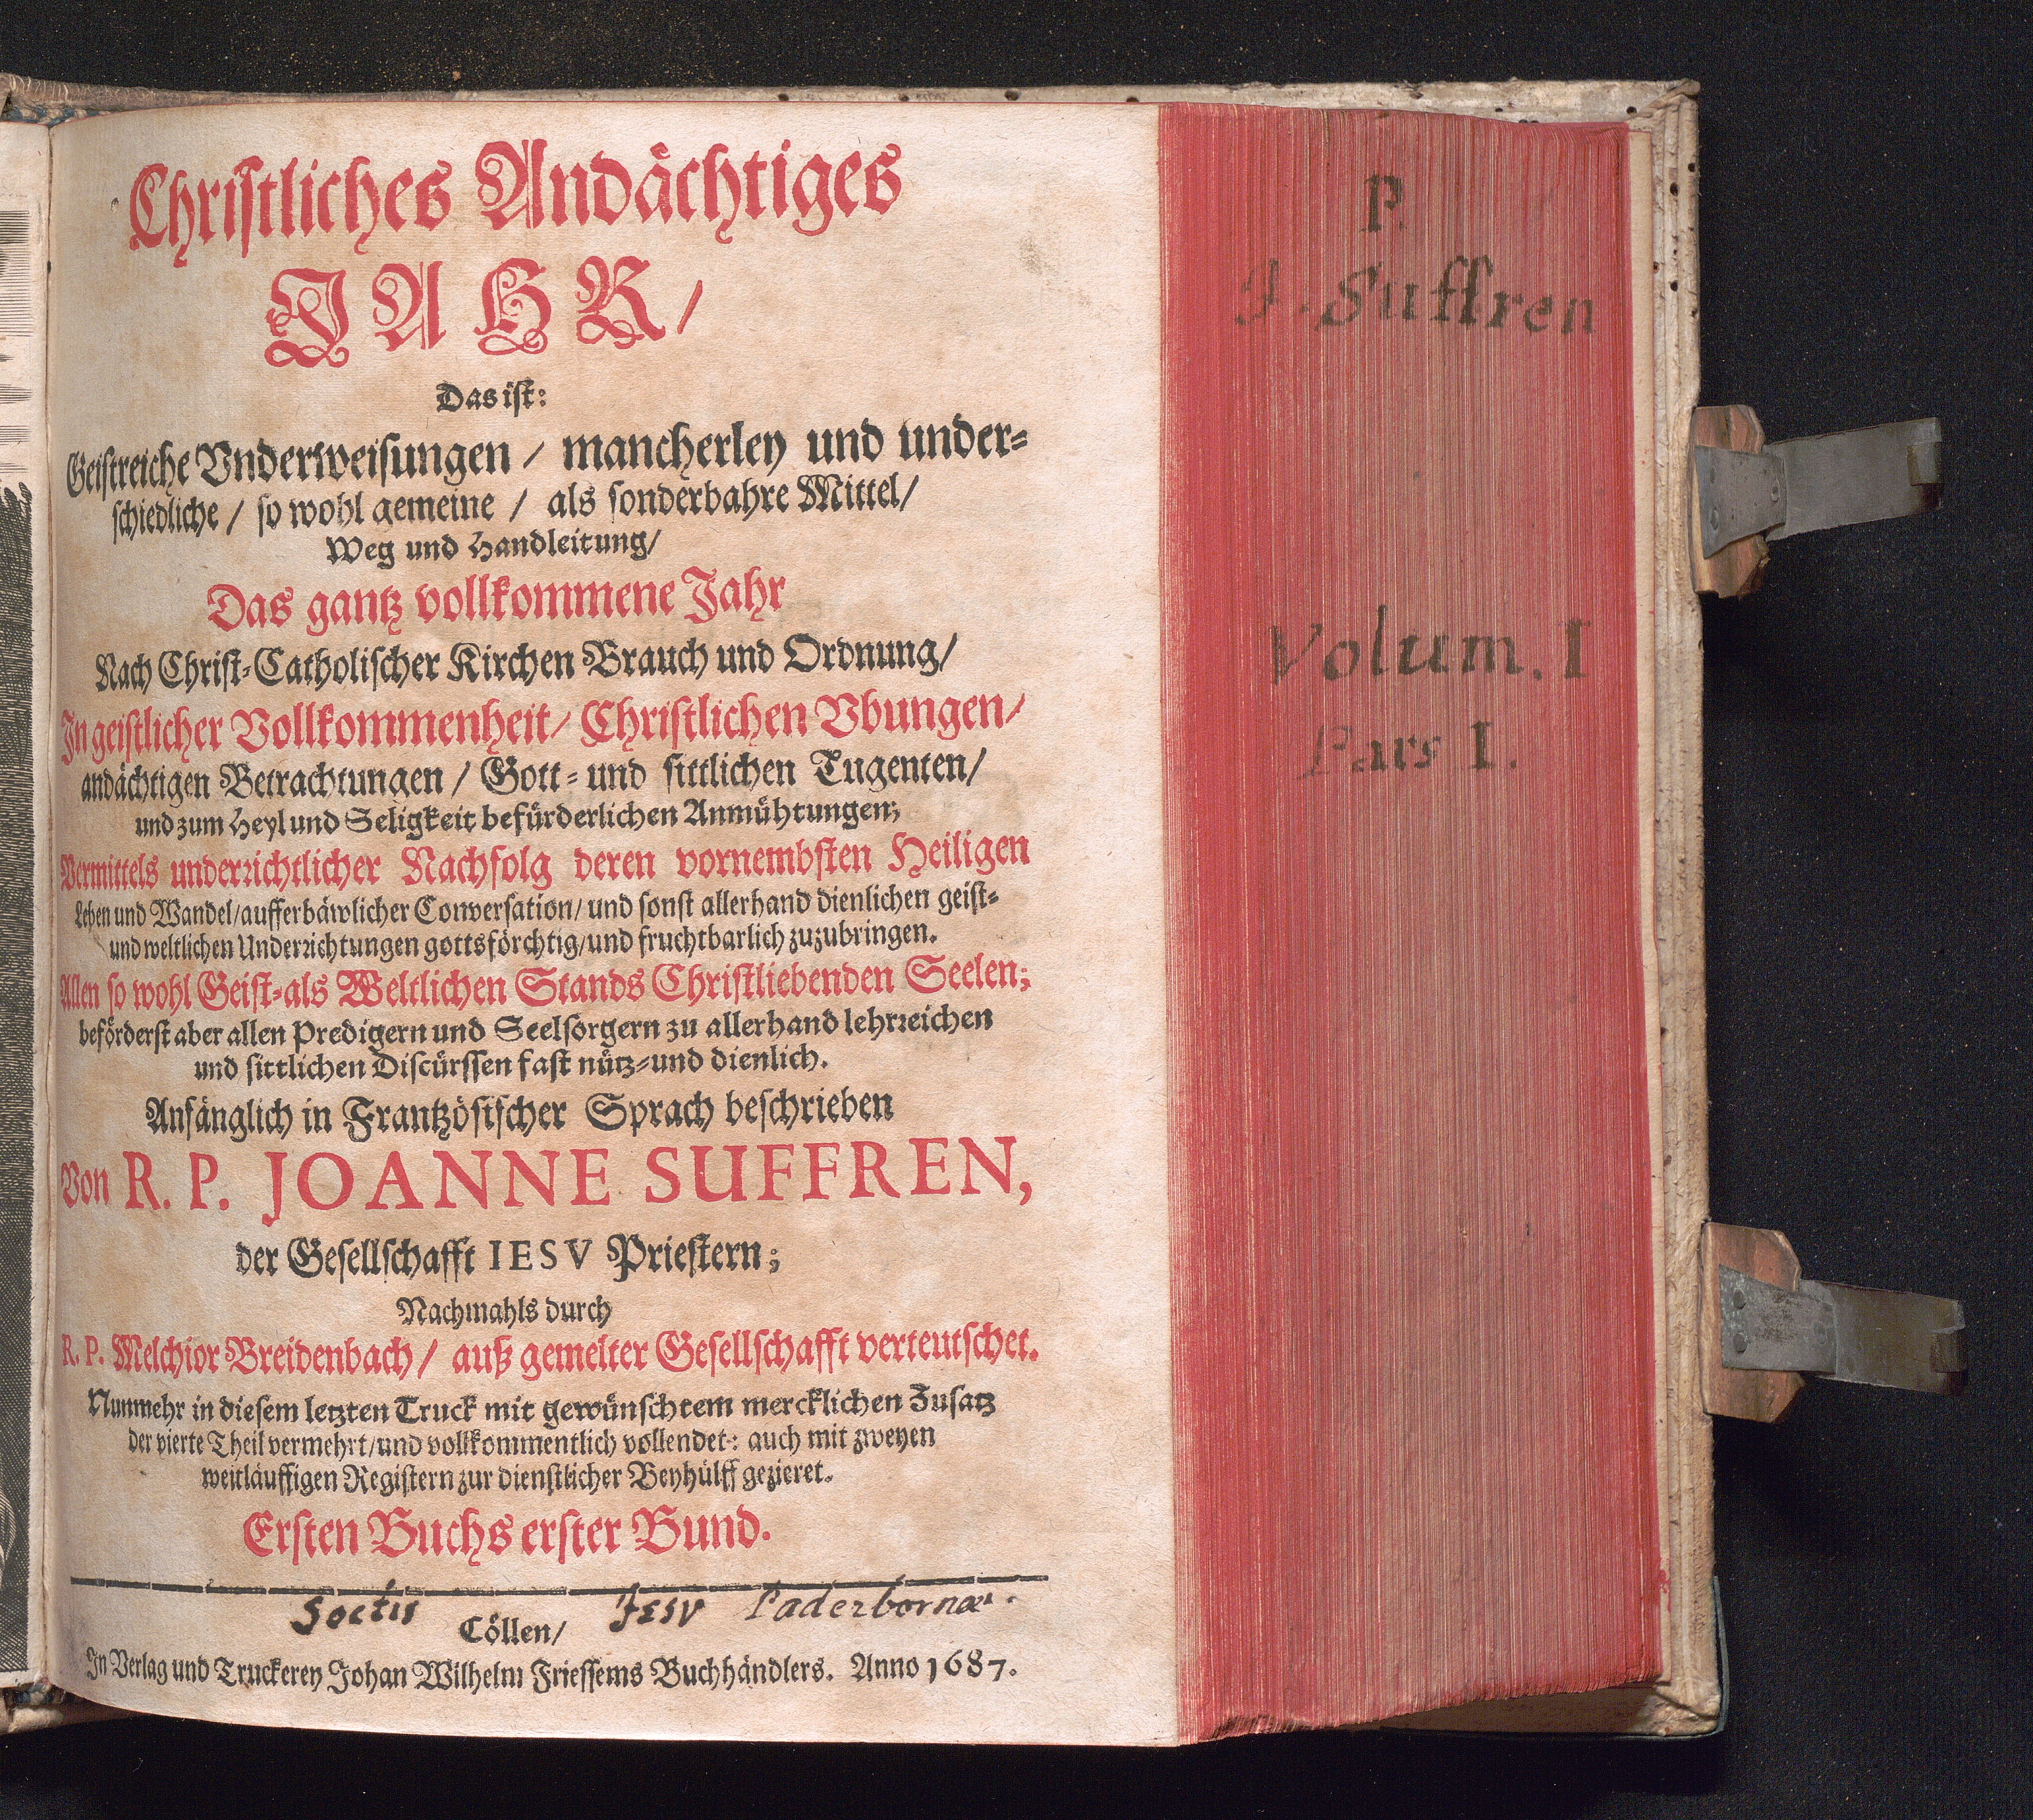 Christliches Andächtiges
JAHR/
Das ist:
Geistreiche Vnderweisungen / mancherley und under-
schiedliche / so wohl gemeine / als sonderbahre Mittel/
Weg und Handleitung/
Das gantz vollkommene Jahr
Nach Christ-Catholischer Kirchen Brauch und Ordnung/
In geistlicher Vollkommenheit/ Christlichen Vbungen/
andächtigen Betrachtungen / Gott- und sittlichen Tugenten/
und zum Heyl und Seligkeit befürderlichen Anmühtungen;
Vermittels underrichtlicher Nachfolg deren vornembsten Heiligen
Leben und Wandel/aufferbäwlicher Conversation/ und sonst allerhand dienlichen geist-
und weltlichen Underrichtungen gottsförchtig/und fruchtbarlich zuzubringen.
Allen so wohl Geist-als Weltlichen Stands Christliebenden Seelen;
beförderst aber allen Predigern und Seelsorgern zu allerhand lehrreichen
und sittlichen Discürssen fast nütz-und dienlich.
Anfänglich in Frantzösischer Sprach beschrieben
Von R. P. JOANNE SUFFREN,
der Gesellschafft IESV Priestern;
Nachmahls durch
R. P. Melchior Breidenbach/ auß gemelter Gesellschafft verteutschet.
Nunmehr in diesem letzten Truck mit gewünschtem mercklichen Zusatz
der vierte Theil vermehrt/und vollkommentlich vollendet: auch mit zweyen
weitläuffigen Registern zur dienstlicher Beyhülff gezieret.
Ersten Buchs erster Bund.
Soctis Jesv Paderbornæ.
Cöllen/
In Verlag und Truckerey Johan Wilhelm Friessems Buchhändlers. Anno 1687.
P.
J. Suffren
Volum. I
Pars I.